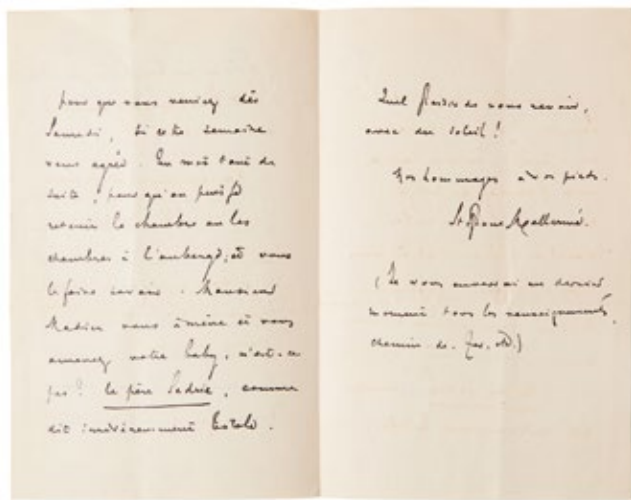 pour que vous veniez dès
Samedi, si cette semaine
vous agrée. Un mot tout de
suite, pour qu'on puisse
retenir la chambre ou les
chambres à l'auberge, et vous
le faire savoir. Monsieur
vous amène et vous
amenez votre baby, n'est-ce
pas? le père, comme
dit irrévérencieusement
Quel plaisir de vous revoir,
avec du soleil!
Nos hommages à vos pieds.
Stéphane Mallarmé.
(Je vous enverrai au dernier
moment tous les renseignements,
chemin de fer, etc.)